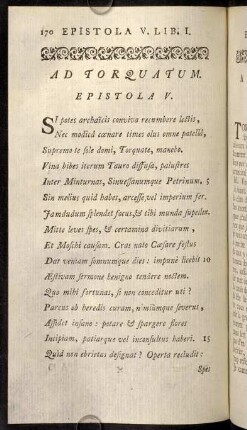 170 EPISTOLA V. LIB. I.
AD TORQUATUM.
EPISTOLA V.
SI potes archaïcis conviva recumbere lectis,
Nec modicâ cœnare times olus omne patellâ,
Supremo te sole domi, Torquate, manebo.
Vina bibes iterum Tauro diffusa, palustres
Inter Minturnas, Sinuessanumque Petrinum. 5
Sin melius quid habes, arcesse, vel imperium fer.
Jamdudum splendet focus, & tibi munda supellex.
Mitte leves spes, & certamina divitiarum,
Et Moschi causam. Cras nato Cæsare festus
Dat veniam somnumque dies: impunè licebit 10
Æstivam sermone benigno tendere noctem.
Quo mihi fortunas, si non conceditur uti?
Parcus ob heredis curam, nimiùmque severus,
Assidet insano: potare & spargere flores
Incipiam, patiarque vel inconsultus haberi. 15
Quid non ebrietas designat? Operta recludit:
Spes